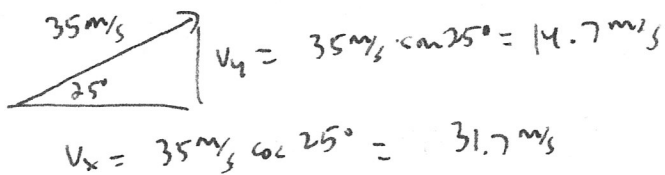 35 m/s
V_y = 35 m/s sin 25° = 14.7 m/s
25°
V_x = 35 m/s cos 25° = 31.7 m/s